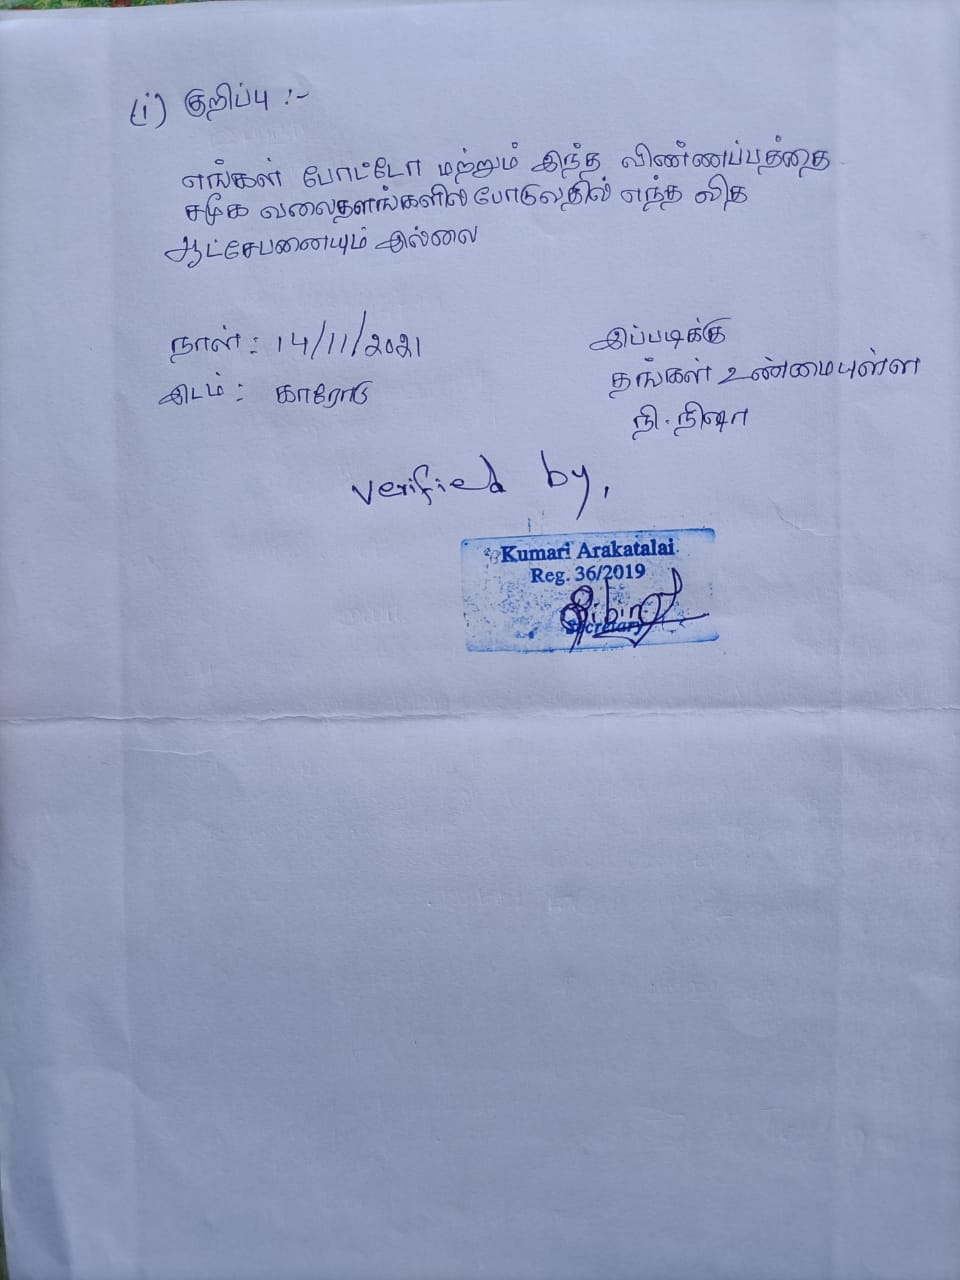 (i) குறிப்பு :-
எங்கள் போட்டோ மற்றும் இந்த விண்ணப்பத்தை
சமூக வலைதளங்களில் போடுவதில் எந்த வித
ஆட்சேபனையும் இல்லை
நாள் : 14/11/2021
இடம் : காரோடு
இப்படிக்கு
தங்கள் உண்மையுள்ள
நி. நிஷா
verified by,
Kumari Arakatalai
Reg. 36/2019
Secretary